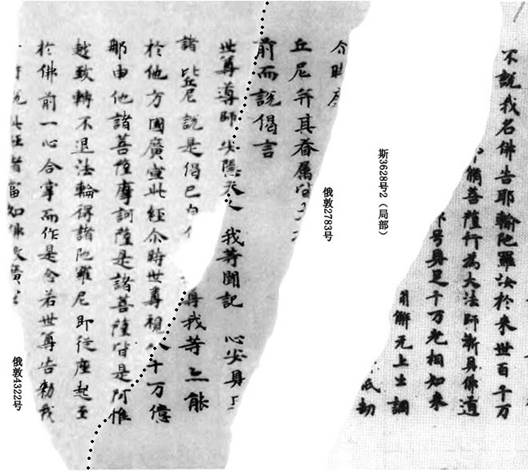 不說我名佛告耶輸陀羅汝於来世百千万
脩菩薩行為大法師漸具佛道
号具足千万光相如来
解无上士調
祇劫
斯3628号2（局部）
俄敦2783号
尒時
丘尼并其眷属皆
前而說偈言
世尊導師 安隱天人 我等聞記 心安具
諸比丘尼說是偈已白 我等亦能
於他方國廣宣此經尒時世尊視八十万億
那由他諸菩薩摩訶薩是諸菩薩皆是阿惟
越致轉不退法輪得諸陀羅尼即從座起至
於佛前一心合掌而作是念若世尊告勑我
說此經者當知佛教廣宣
俄敦4322号